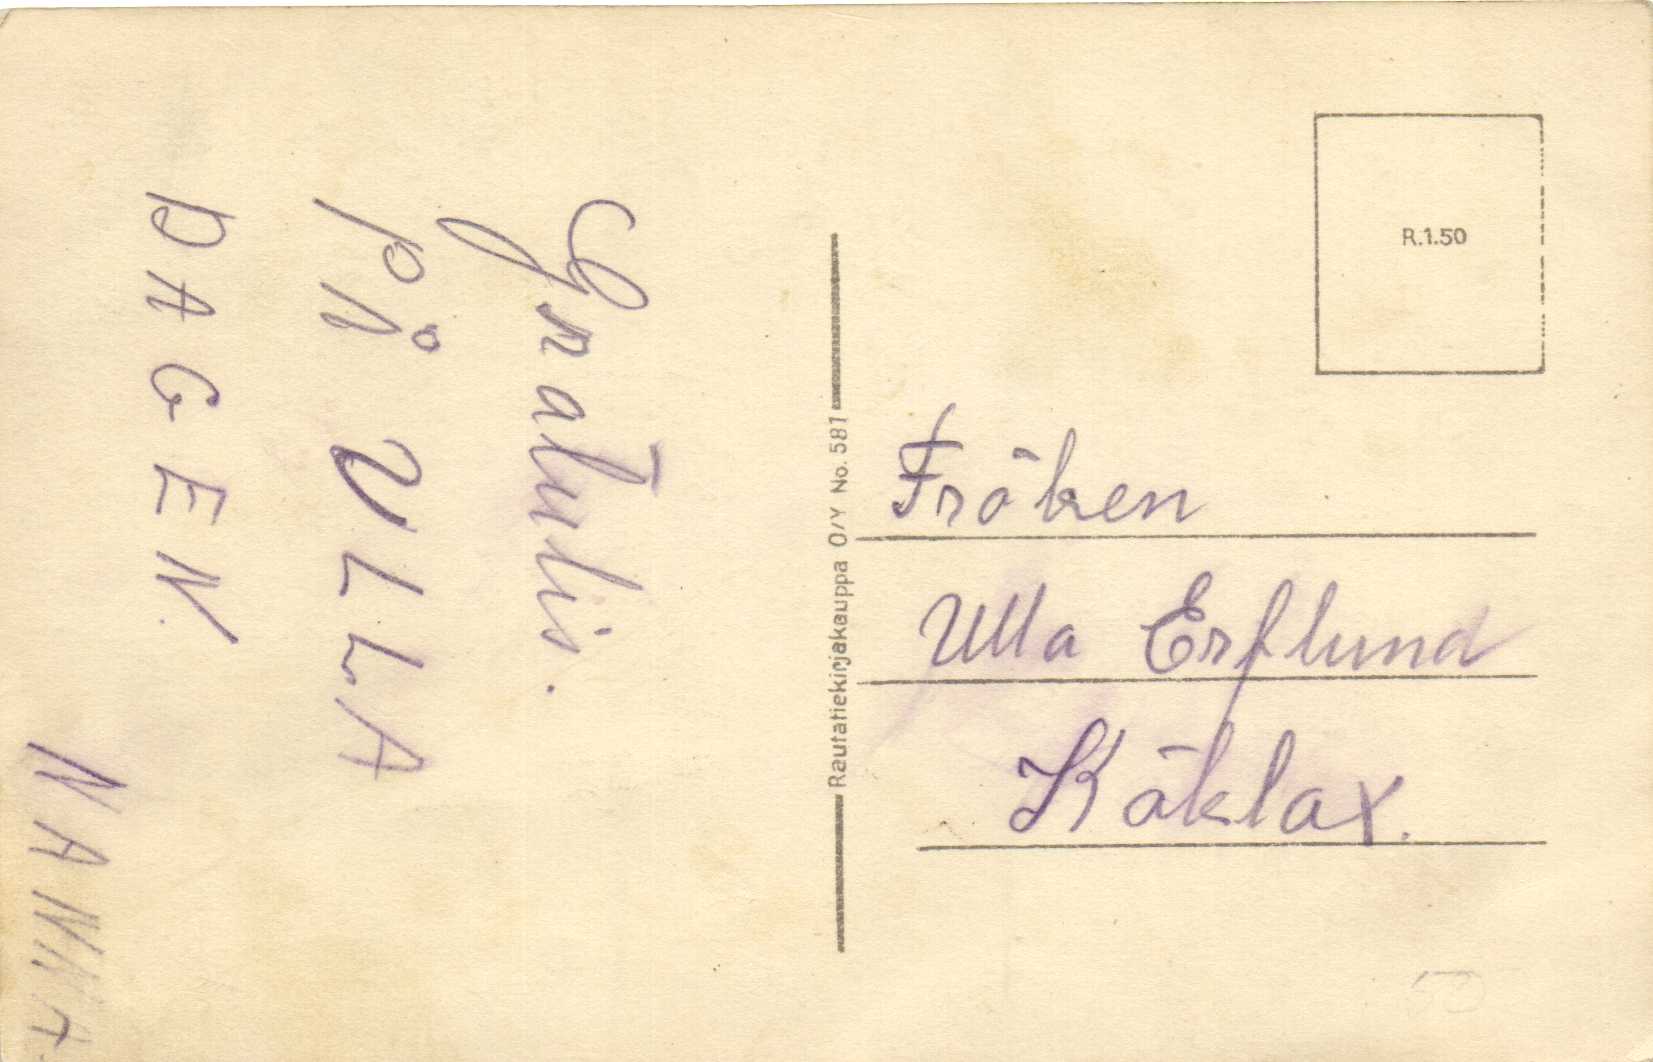 Gratulis.
PÅ ULLA
DAGEN.
NANNA.
Rautatiekirjakauppa O/Y No. 581
R.1.50
Fröken
Ulla Erflund
Köklax.
50